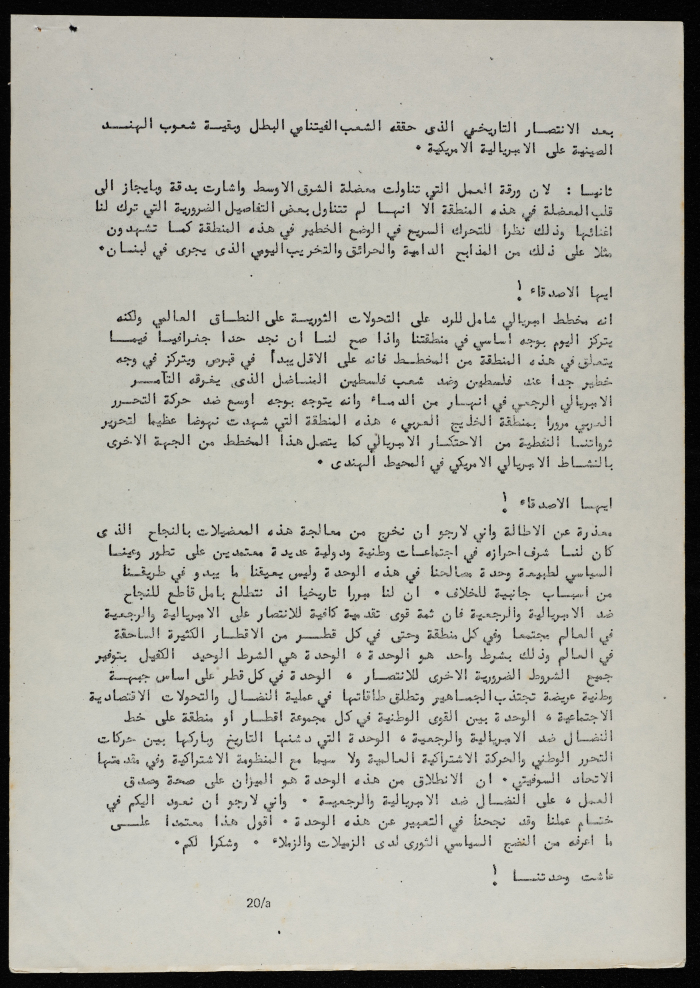 بعد الانتصار التاريخي الذى حققه الشعب الفيتنامي البطل وبقيـة شعوب الهنـد
الصينية على الامبريالية الامريكية •
ثانيـا : لان ورقة العمل التي تناولت معضلة الشرق الاوسط واشارت بدقة وبايجاز الى
قلب المعضلة في هذه المنطقة الا انهـا لم تتناول بعض التفاصيل الضرورية التي ترك لنا
اغنائها وذلك نظرا للتحرك السريع في الوضع الخطير في هذه المنطقة كمـا تشهدون
مثلا على ذلك من المذابح الدامية والحرائق والتخريب اليومي الذى يجرى في لبنـان•
ايهـا الاصدقاء !
انه مخطط امبريالي شامل للرد على التحولات الثوريـة على النطـاق العالمي ولكنه
يتركز اليوم بوجه اساسي في منطقتنا واذا صح لنـا ان نجد حدا جغرافيـا فيمـا
يتعلق في هذه المنطقة من المخطـط فانه على الاقل يبدأ في قبرص ويتركز في وجه
خطير جدا عند فلسطين وضد شعب فلسطين المنـاضل الذى يغرقه التآمـر
الامبريالي الرجعي في انهـار من الدمـاء وانه يتوجه بوجه اوسع ضد حركة التحـرر
العربي مرورا بمنطقة الخليج العربي ، هذه المنطقة التي شهدت نهوضا عظيما لتحرير
ثرواتنـا النفطية من الاحتكـار الامبريالي كما يتصل هذا المخطط من الجهة الاخرى
بالنشـاط الامبريالي الامريكي في المحيط الهندى •
ايهـا الاصدقاء !
معذرة عن الاطالة واني لارجو ان نخرج من معالجة هذه المعضيلات بالنجاح الذى
كان لنـا شرف احرازه في اجتماعـات وطنية ودولية عديدة معتمدين على تطور وعينـا
السياسي لطبيعة وحدة مصالحنا في هذه الوحدة وليس يعيقنا ما يبدو في طريقـنا
من اسبـاب جانبية للخلاف • ان لنا مبررا تاريخيا اذ نتطلع بامل قاطع للنجاح
ضد الامبريالية والرجعية فان ثمة قوى تقدمية كافية للانتصار على الامبريالية والرجعية
في العالم مجتمعـا وفي كل منطقة وحتى في كل قطـر من الاقطـار الكثيرة الساحقة
في العالم وذلك بشرط واحد هو الوحدة ، الوحدة هي الشرط الوحيد الكفيل بتوفير
جميع الشروط الضرورية الاخرى للانتصـار ، الوحدة في كل قطر على اساس جبهـة
وطنية عريضة تجتذب الجمـاهير وتطلق طاقاتهـا في عملية النضـال والتحولات الاقتصادية
الاجتماعية ، الوحدة بين القوى الوطنية في كل مجموعة اقطـار او منطقة على خط
النضـال ضد الامبريالية والرجعية ، الوحدة التي دشنهـا التاريخ وباركها بين حركات
التحرر الوطني والحركة الاشتراكية العالمية ولا سيما مع المنظومة الاشتراكية وفي مقدمتها
الاتحاد السوفيتي • ان الانطلاق من هذه الوحدة هو الميزان على صحة وصدق
العمل ، على النضـال ضد الامبريالية والرجعيـة • واني لارجو ان نعود اليكم في
ختـام عملنا وقد نجحنا في التعبير عن هذه الوحدة • اقول هذا معتمدا علـى
ما اعرفه من النضج السياسي الثورى لدى الزميلات والزملاء • وشكرا لكم•
عاشت وحدتنـا !
20/a